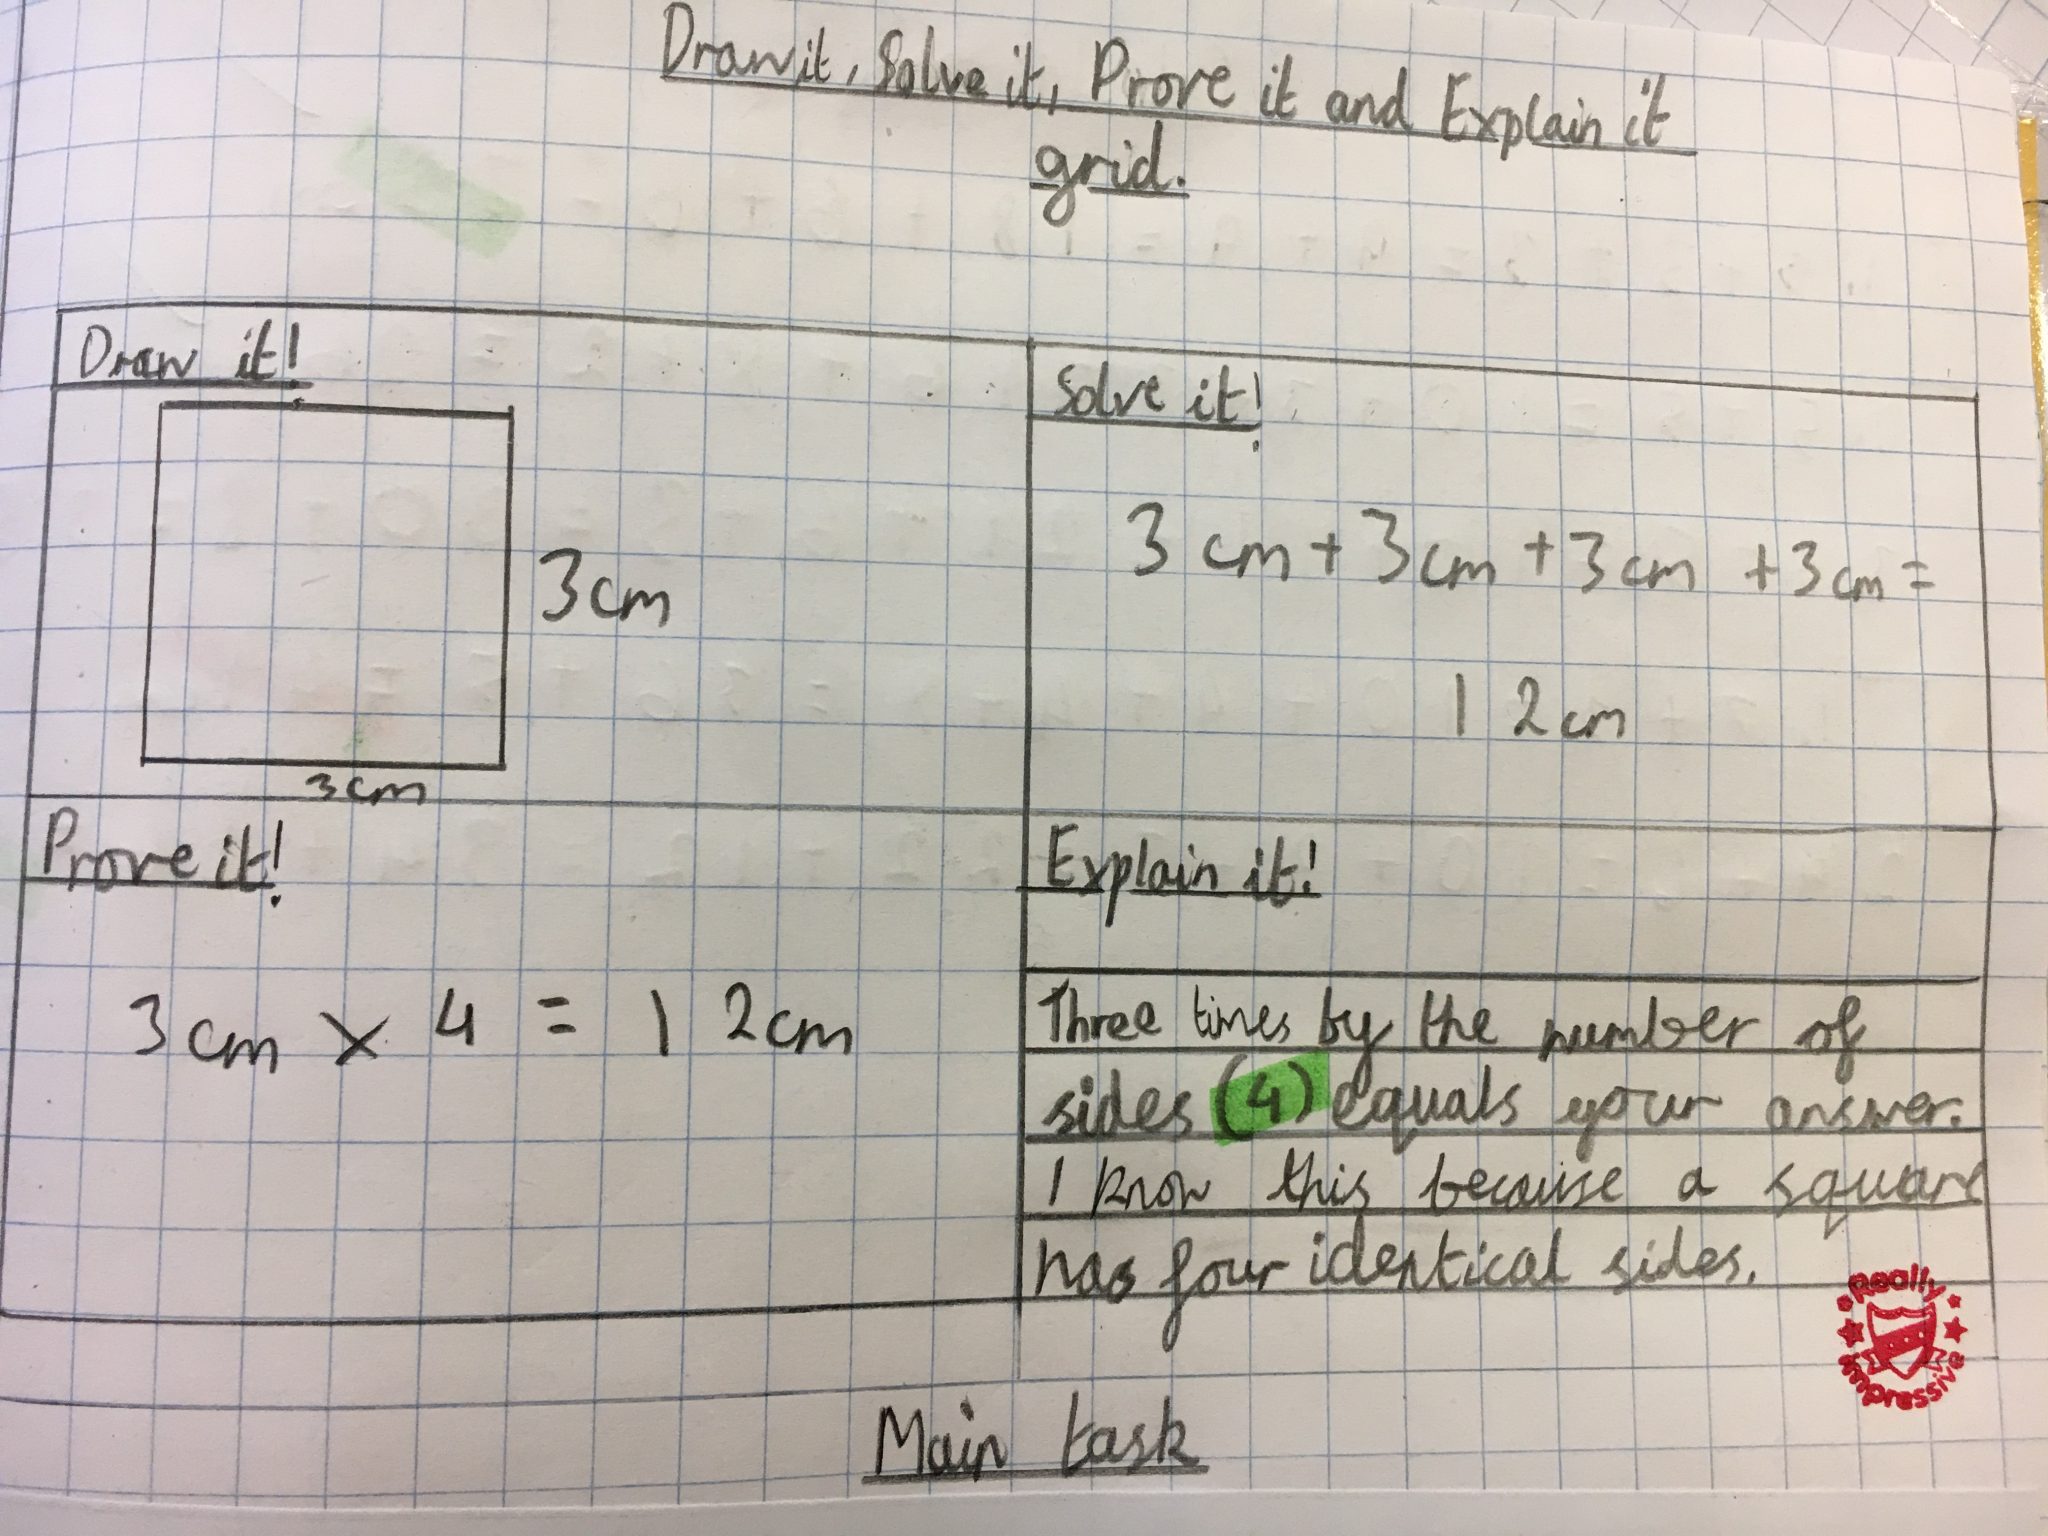 Draw it, Solve it, Prove it and Explain it
grid.
Draw it!
3cm
3cm
Solve it!
3 cm + 3cm + 3cm + 3cm =
12cm
Prove it!
3cm × 4 = 12cm
Explain it!
Three times by the number of
sides (4) equals your answer.
I know this because a square
has four identical sides.
Really
impressive
Main task